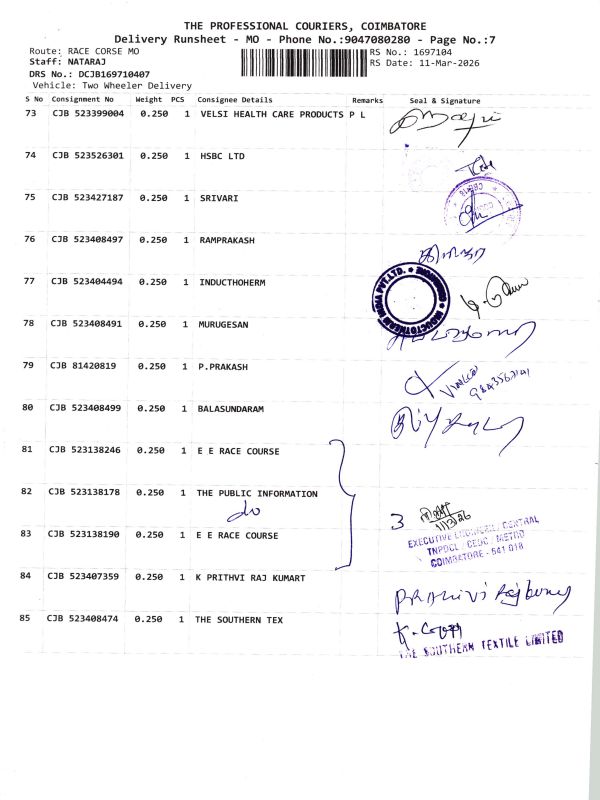 THE PROFESSIONAL COURIERS, COIMBATORE
Delivery Runsheet - MO - Phone No.:9047080280 - Page No.:7
Route: RACE CORSE MO
RS No.: 1697104
Staff: NATARAJ
RS Date: 11-Mar-2026
DRS No.: DCJB169710407
Vehicle: Two Wheeler Delivery
S No Consignment No Weight PCS Consignee Details Remarks Seal & Signature
73 CJB 523399004 0.250 1 VELSI HEALTH CARE PRODUCTS P L
74 CJB 523526301 0.250 1 HSBC LTD
75 CJB 523427187 0.250 1 SRIVARI
76 CJB 523408497 0.250 1 RAMPRAKASH
77 CJB 523404494 0.250 1 INDUCTHOHERM
INDUCTOTHERM INDIA PVT.LTD.
78 CJB 523408491 0.250 1 MURUGESAN
79 CJB 81420819 0.250 1 P.PRAKASH
80 CJB 523408499 0.250 1 BALASUNDARAM
81 CJB 523138246 0.250 1 E E RACE COURSE
82 CJB 523138178 0.250 1 THE PUBLIC INFORMATION
do
3
11/3/26
83 CJB 523138190 0.250 1 E E RACE COURSE
EXECUTIVE ENGINEER/ CENTRAL
TNPDCL / CEDC / METRO
COIMBATORE - 641 018
84 CJB 523407359 0.250 1 K PRITHVI RAJ KUMART
85 CJB 523408474 0.250 1 THE SOUTHERN TEX
THE SOUTHERN TEXTILE LIMITED